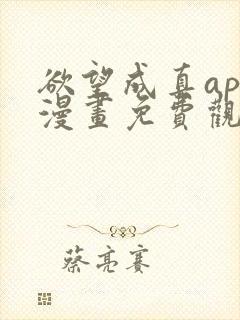 欲望成真ap
漫畫免費觀
蔡亮賽